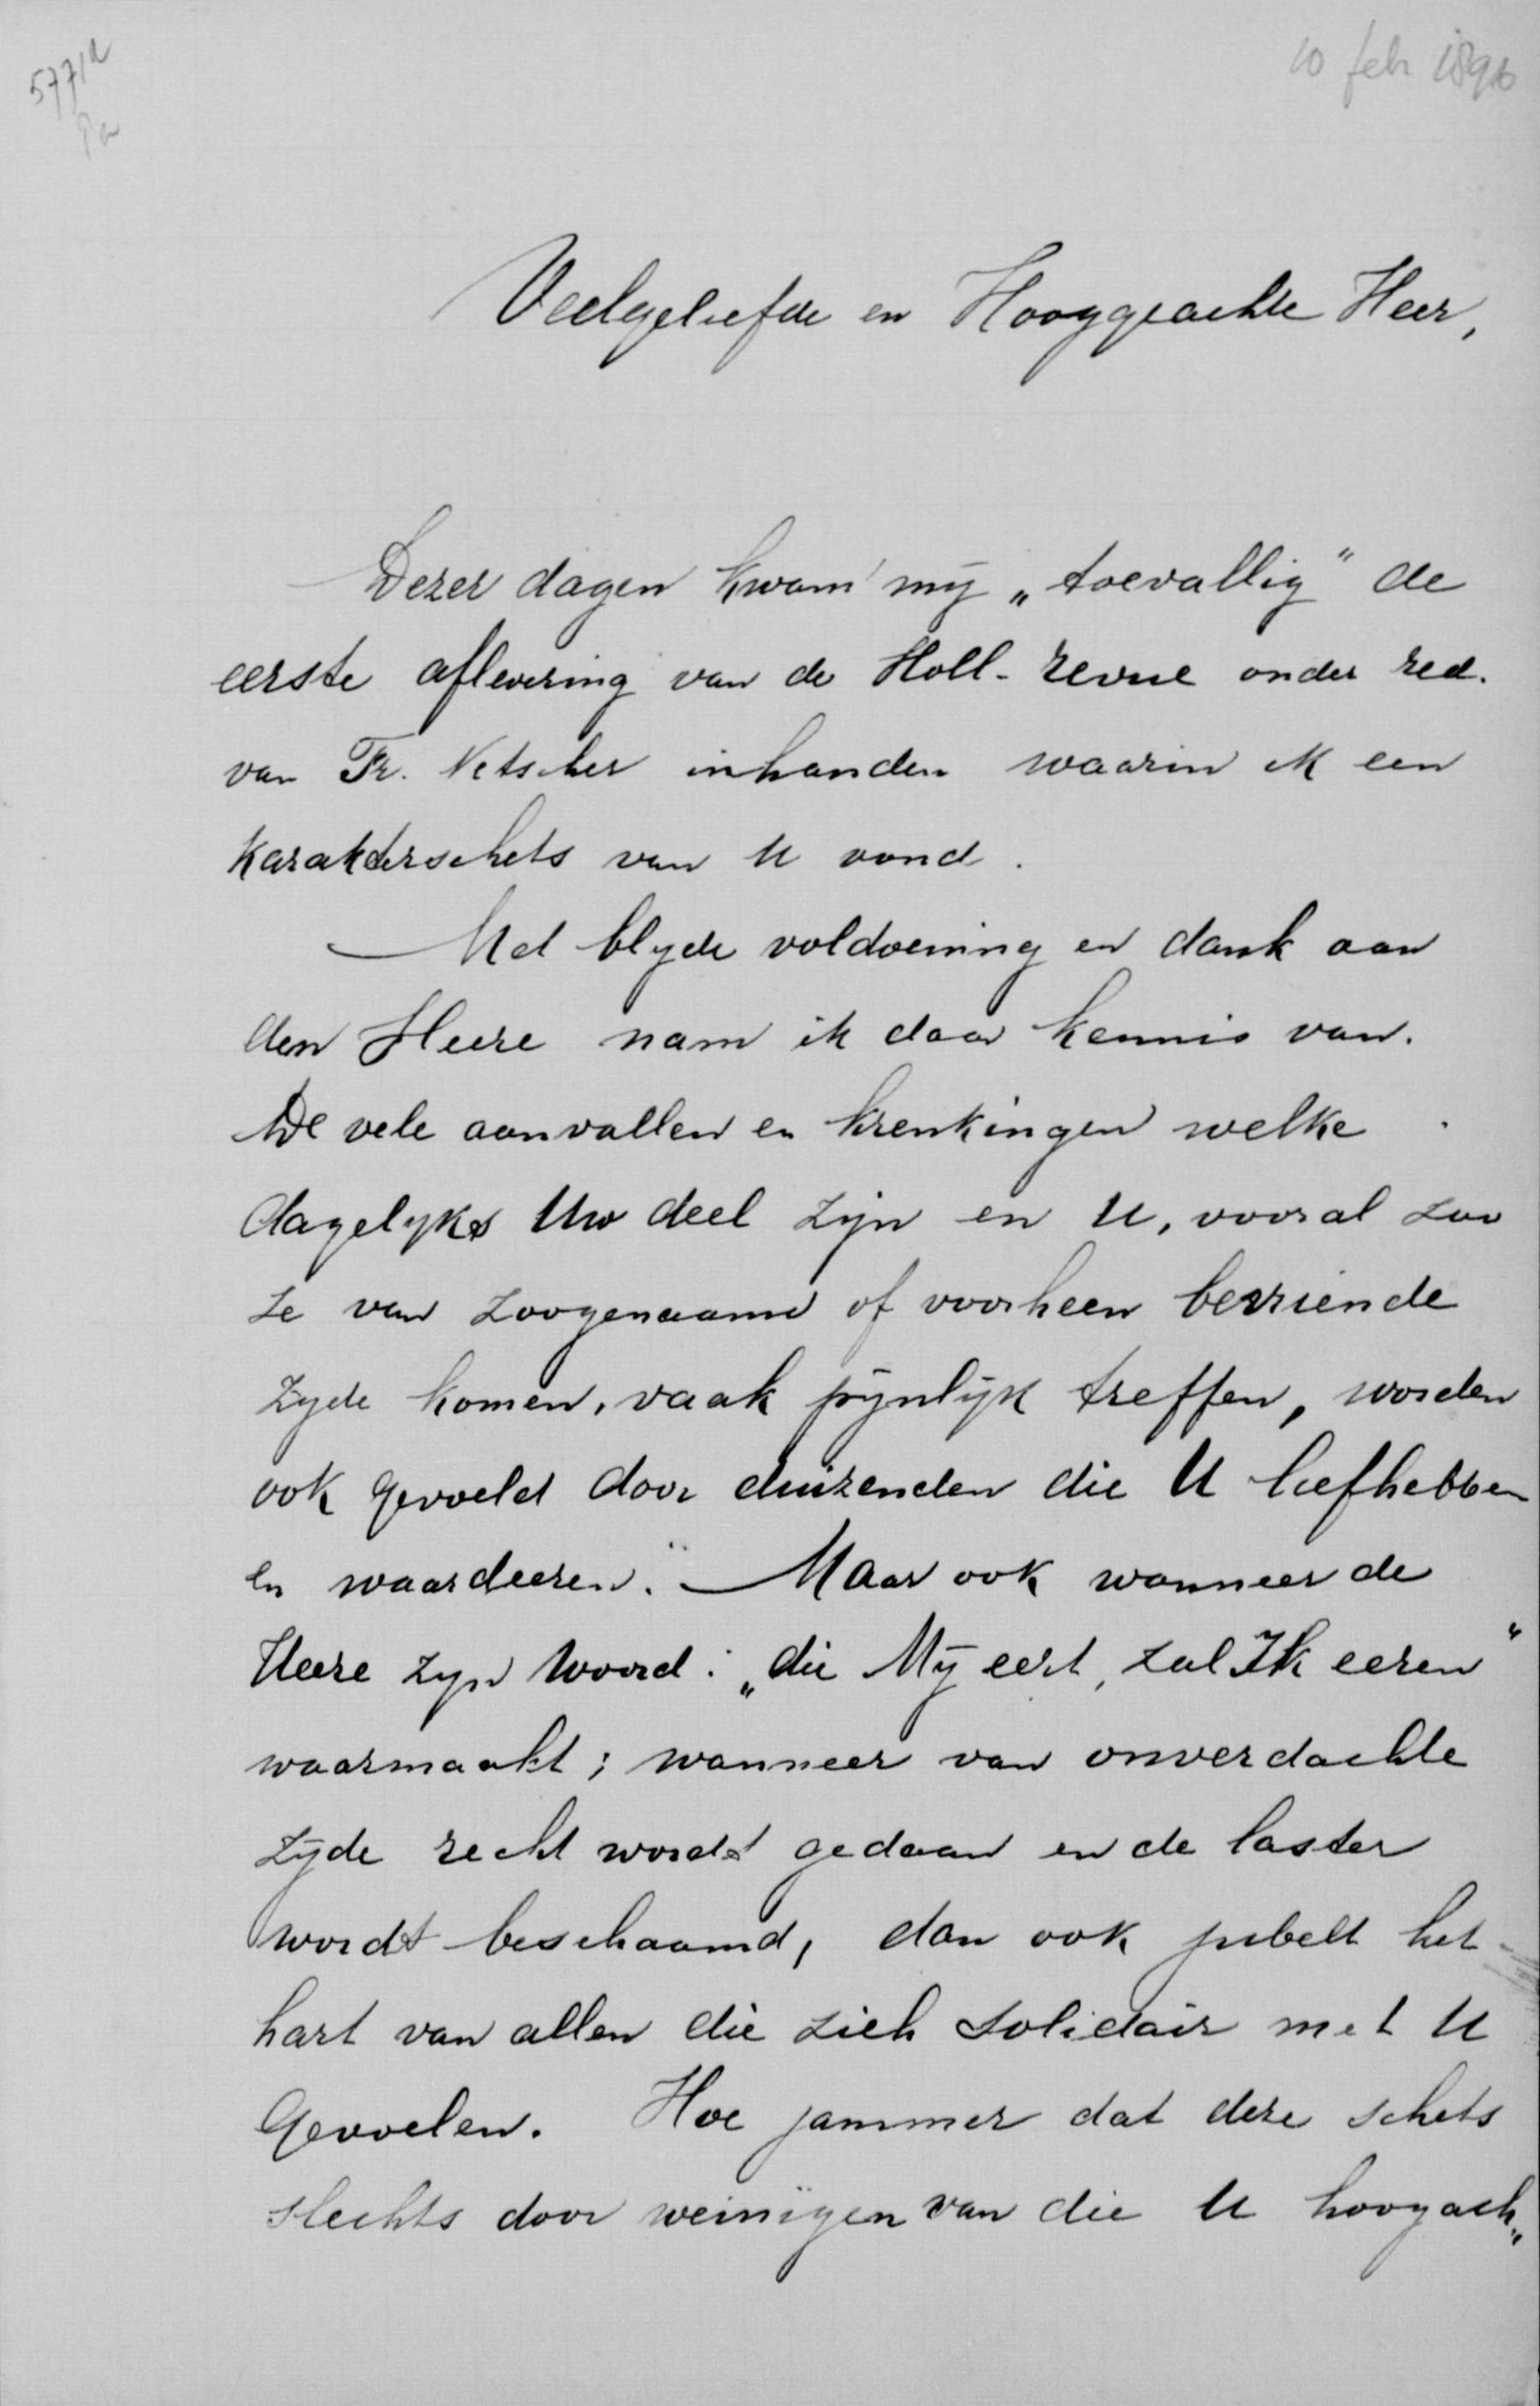 10 feb 1896
Veelgeliefde en Hooggeachte Heer,
Dezer dagen kwam mij „toevallig" de
eerste aflevering van de Holl- revue onder red.
van Fr. Netscher inhanden waarin ik een
karakterschets van U vond.
Met blyde voldoening en dank aan
den Heere nam ik daar kennis van.
De vele aanvallen en krenkingen welke
dagelyks Uw deel zijn en U, vooral zoo
ze van zoogenaamd of voorheen bevriende
zyde komen, vaak pynlijk treffen, worden
ook gevoeld door duizenden die U liefhebben
en waardeeren. Maar ook wanneer de
Heere zyn Woord: „die Mij eert, zal Ik eeren"
waarmaakt; wanneer van onverdachte
zijde recht wordt gedaan en de laster
wordt beschaamd, dan ook jubelt het
hart van allen die zich solidair met U
gevoelen. Hoe jammer dat deze schets
slechts door weinigen van die U hoogach„